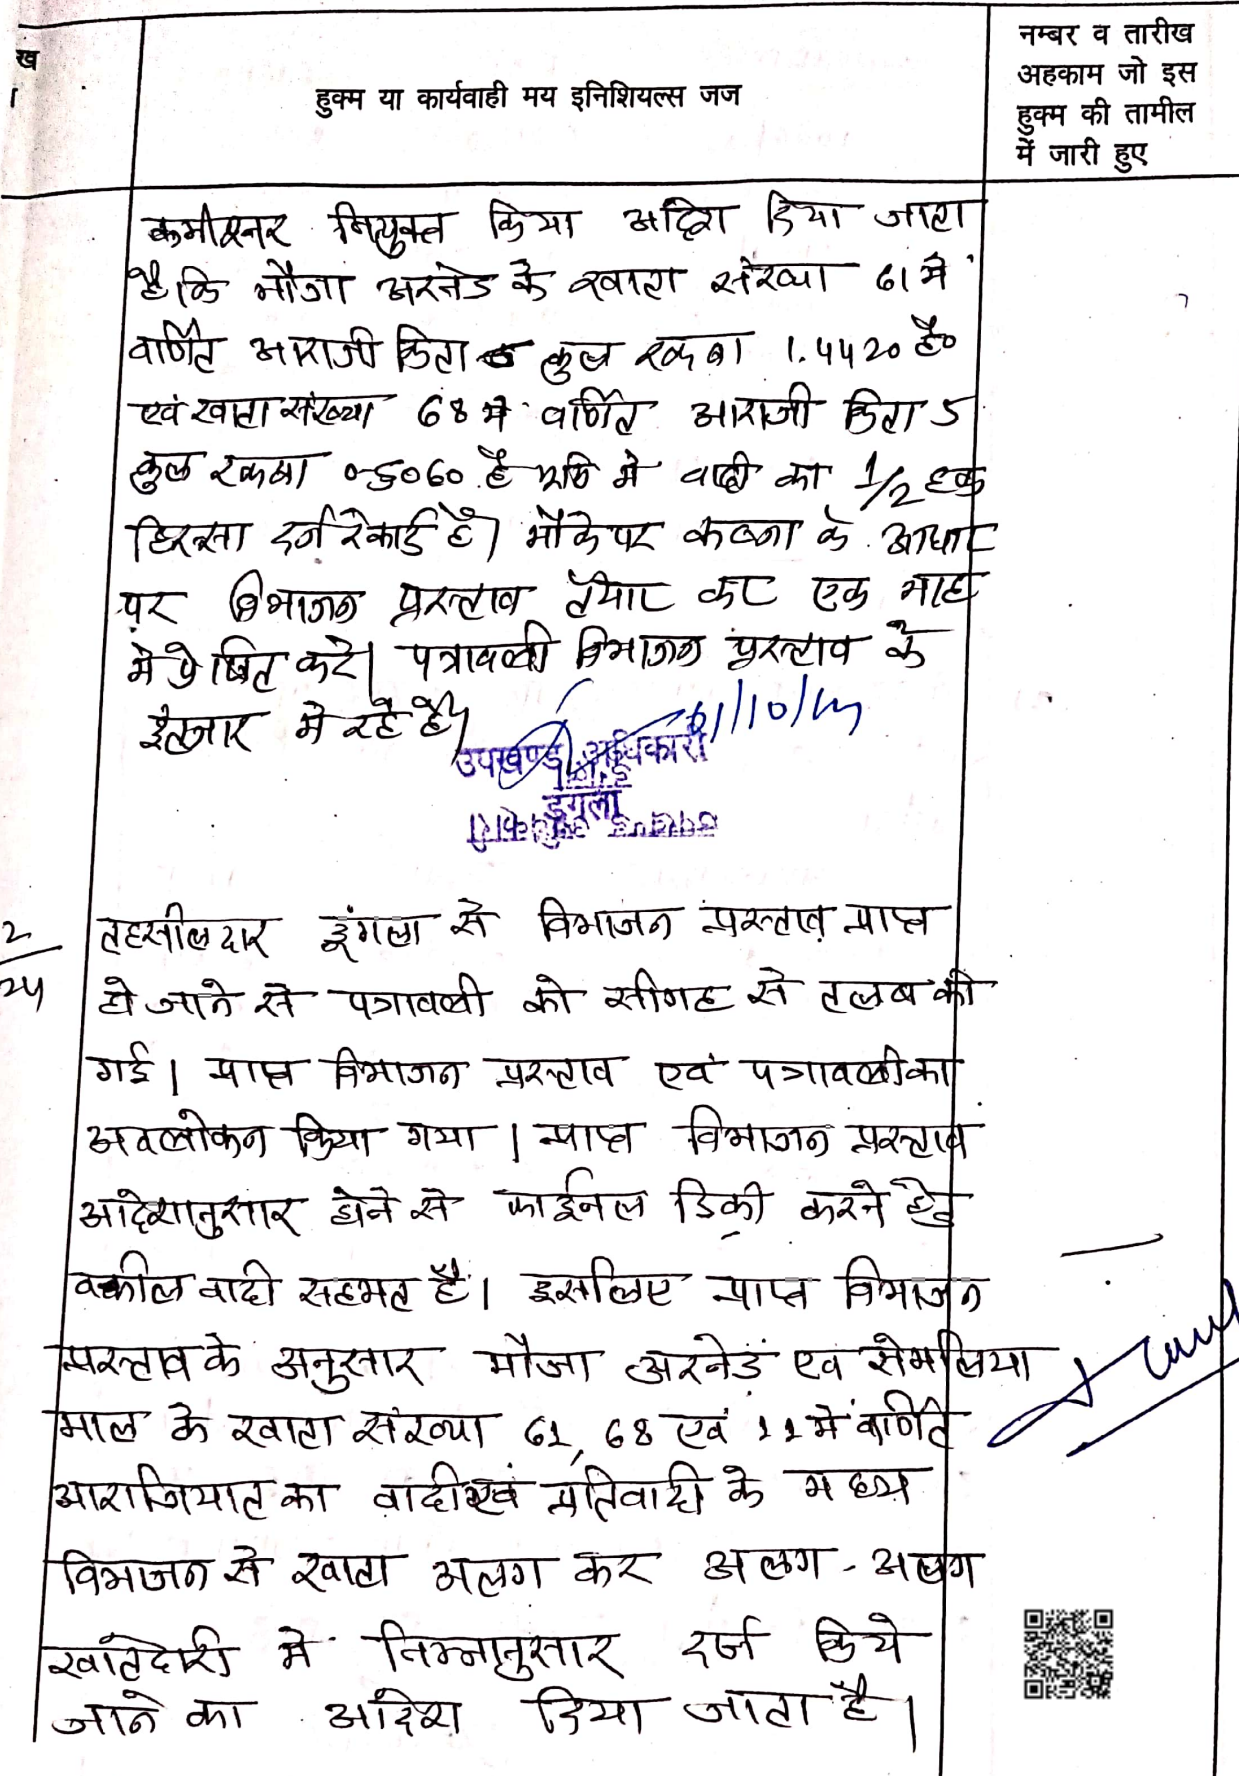 ख
हुक्म या कार्यवाही मय इनिशियल्स जज
नम्बर व तारीख
अहकाम जो इस
हुक्म की तामील
में जारी हुए
कमीश्नर नियुक्त किया आदेश दिया जाता
है कि मौजा अरनेड के खाता संख्या 61 मे
वर्णित आराजी किता कुल रकबा 1.4420 है०
एवं खाता संख्या 68 मे वर्णित आराजी किता 5
कुल रकबा 0.5060 है भूमि मे वादी का 1/2 हक
हिस्सा दर्ज रेकार्ड है। मौके पर कब्जा के आधार
पर विभाजन प्रस्ताव तैयार कर एक माह
मे प्रेषित करे। पत्रावली विभाजन प्रस्ताव के
इंतजार मे रहे
उपखण्ड अधिकारी
डूंगला
2
24
तहसीलदार डूंगला से विभाजन प्रस्ताव प्राप्त
हो जाने से पत्रावली को सीगह से तलब की
गई। प्राप्त विभाजन प्रस्ताव एवं पत्रावली का
अवलोकन किया गया। प्राप्त विभाजन प्रस्ताव
आदेशानुसार होने से फाईनल डिक्री करने हेतु
वकील वादी सहमत है। इसलिए प्राप्त विभाजन
प्रस्ताव के अनुसार मौजा अरनेड एवं सेमलिया
माल के खाता संख्या 61, 68 एवं 11 मे वर्णित
आराजियात का वादी एवं प्रतिवादी के मध्य
विभाजन से खाता अलग कर अलग - अलग
खातेदारी मे निम्नानुसार दर्ज किये
जाने का आदेश दिया जाता है।